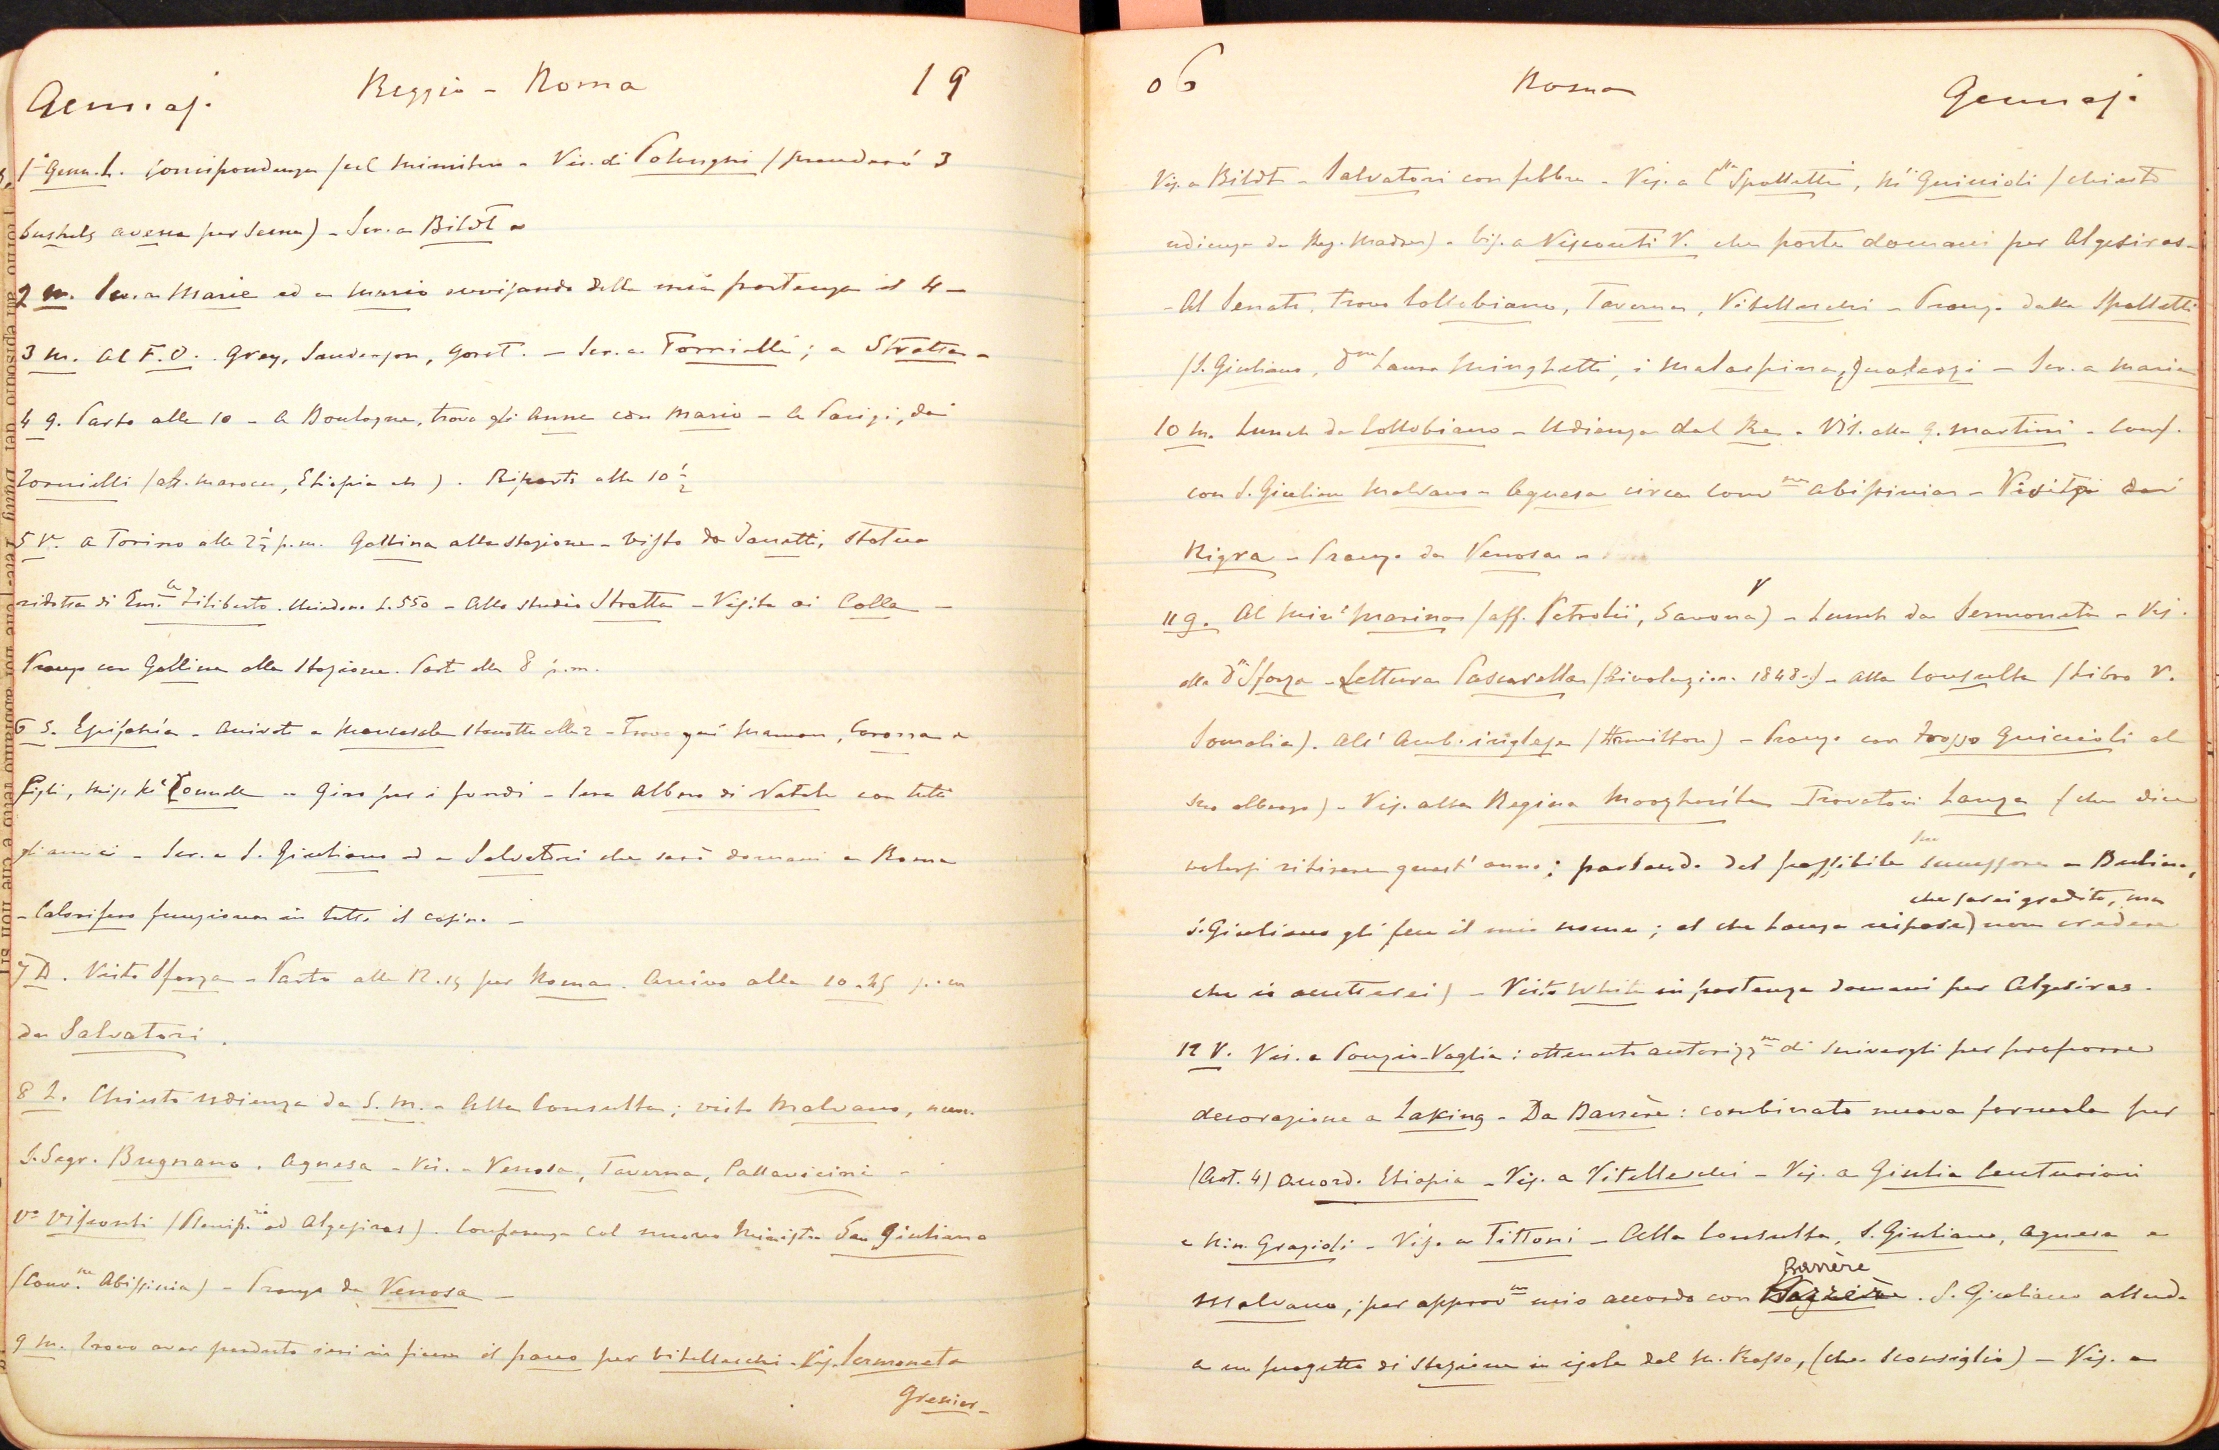 Gennaj. Reggio - Roma 19
1° Genn. L. Corrispondenza pel Ministro - Vis. di Polenghi (prenderò 3
bushels avena per seme) - Scr. a Bildt -
2 M. Scr. a Marie ed a Mario avvisando della mia partenza il 4 -
3 M. Al F.O. Grey, Sanderson, Gorst. - Scr. a Tornielli; a Stratta -
4 G. Parto alle 10 - A Boulogne, trovo gli Anne con Mario - A Parigi, da
Tornielli (aff. Marocco, Etiopia etc). Riparto alle 10 ½
5 V. A Torino alle 2½ p.m. Gallina alla stazione - Visto da Janetti, statua
ridotta di Em.le Filiberto. Chiedono L. 550 - Allo studio Stratta - Visita ai Colla -
Pranzo con Gallina alla stazione. Parto alle 8 p.m.
6 S. Epifania - Arrivato a stanotte alle 2 - Trovo qui Maman, e
figli, Miss - Giro per i fondi - Sera Albero di Natale con tutti
gli amici - Scr. a S. Giuliano ed a Salvatori che sarò domani a Roma
- Calorifero funziona in tutto il casino -
7 D. Visto Sforza - Parto alle 12.15 per Roma. Arrivo alle 10.45 p.m
da Salvatori.
8 L. Chiesto udienza da S. M. - Alla Consulta; visto Malvano, nuov.
S. Segr. Bugnano, Agnesa - Vis. a Venosa, Taverna, Pallavicini -
Vo Visconti (Plenip.rio ad Algesiras). Conferenza col nuovo Ministro San Giuliano
(Conv.ne Abissinia) - Pranzo da Venosa -
9 M. Trovo aver perduto ieri in fiacre il pacco per Vitelleschi - Vis. Sermoneta
Grenier -
06 Roma Gennaj.
Vis. a Bildt - Salvatori con febbre - Vis. a C.ssa Spalletti, Guiccioli (chiesto
udienza da Reg. Madre) - Vis. a Visconti V. che parte domani per Algesiras -
- Al Senato, trovo Collobiano, Taverna, Vitelleschi - Pranzo dalla Spalletti
(S. Giuliano, Dna Laura Minghetti, i Malaspina, - Scr. a Maria
10 M. Lunch da Collobiano - Udienza dal Re - Vis. alla G. Martini - Conf.
con S. Giuliano Malvano e Agnesa circa Conv.ne Abissinia - Visita da
Nigra - Pranzo da Venosa -
11 G. Al Min° Marina (aff. Petrolii, Savona) - Lunch da Sermoneta - Vis.
alla Dna Sforza - Lettura Pascarella (Rivoluzione 1848-) - Alla Consulta (Libro V.
Somalia). All' Amb. inglese (Hamilton) - Pranzo con Guiccioli al
suo albergo) - Vis. alla Regina Margherita - Trovatovi Lanza (che dice
volersi ritirare quest' anno; parlando del possibile suo successore a Berlino,
S. Giuliano gli fece il mio nome; al che Lanza rispose) che sarei gradito, ma non credere
che io accetterei) - Visto White in partenza domani per Algesiras.
12 V. Vis. a Ponzio-Vaglia: ottenuto autorizz.ne di scrivergli per proporre
decorazione a Laking - Da Barrère: combinato nuova formula per
(Art. 4) Accord. Etiopia - Vis. a Vitelleschi - Vis. a Giulia Centurioni
e Nin. Grazioli - Vis. a Tittoni - Alla Consulta, S. Giuliano, Agnesa e
Malvano; per approv.ne mio accordo con Barrère. S. Giuliano attende
a un progetto di stazione in isola del M. Rosso, (che sconsiglio) - Vis. a